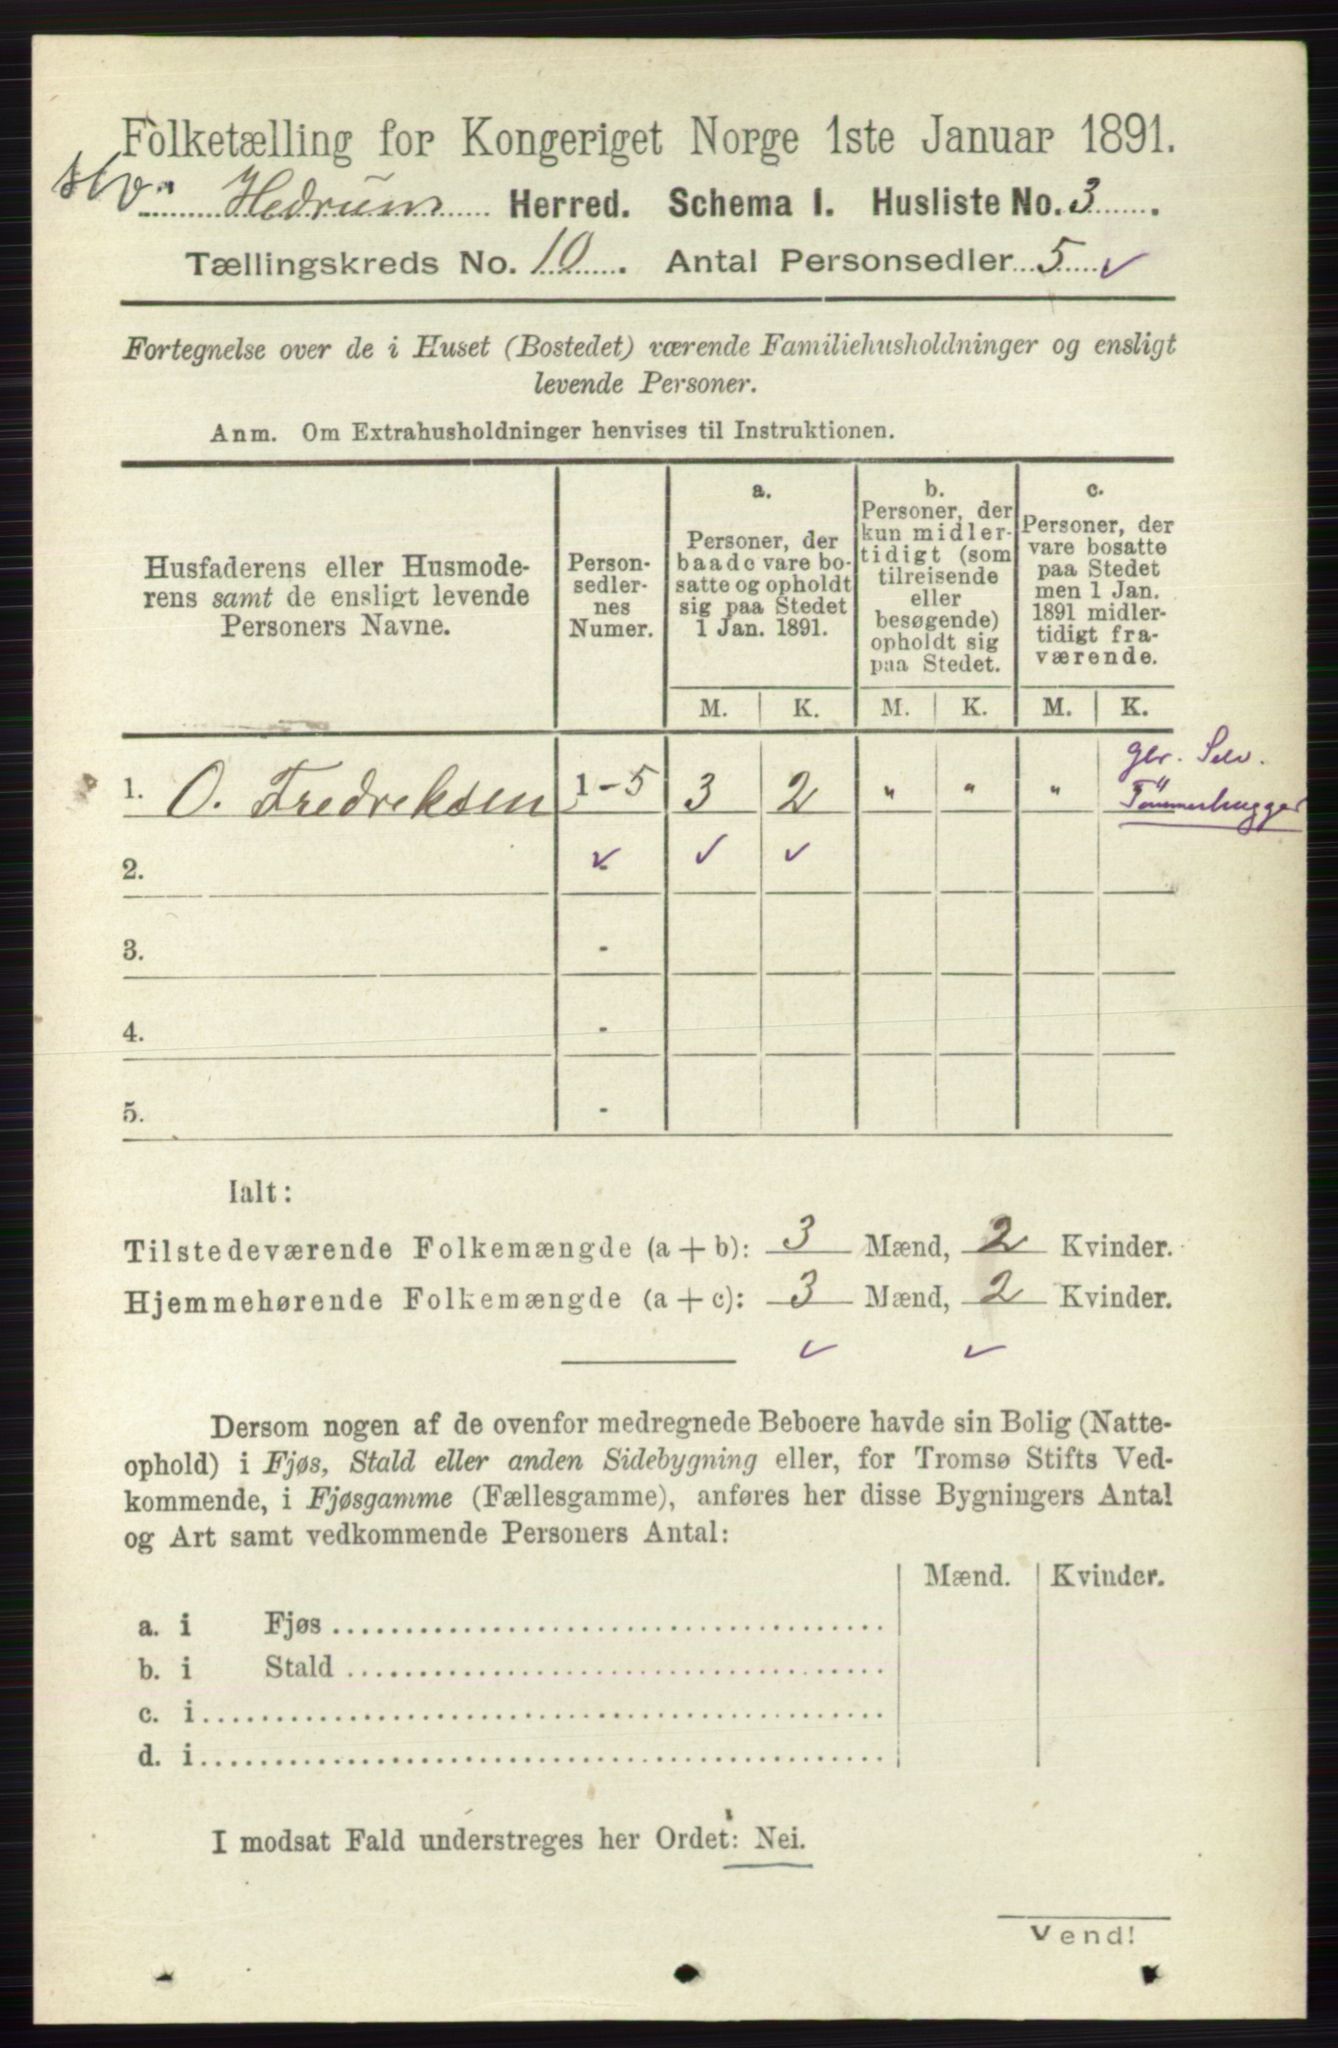 Folketælling for Kongeriget Norge 1ste Januar 1891.
Hedrum Herred. Schema I. Husliste No. 3
Tællingskreds No. 10. Antal Personsedler 5 ✓
Fortegnelse over de i Huset (Bostedet) værende Familiehusholdninger og ensligt
levende Personer.
Anm. Om Extrahusholdninger henvises til Instruktionen.
Husfaderens eller Husmode-
rens samt de ensligt levende
Personers Navne.
Person-
sedler-
nes
Numer.
a.
Personer, der
baade vare bo-
satte og opholdt
sig paa Stedet
1 Jan. 1891.
b.
Personer, der
kun midler-
tidigt (som
tilreisende
eller
besøgende)
opholdt sig
paa Stedet.
c.
Personer, der
vare bosatte
paa Stedet
men 1 Jan.
1891 midler-
tidigt fra-
værende.
M. K. M. K. M. K.
1. O. Fredreksen 1-5 3 2 " " " "
Tömmerhugger
2. ✓ ✓ ✓
3. -
4. -
5. -
Ialt:
Tilstedeværende Folkemængde (a + b): 3 Mænd, 2 Kvinder.
Hjemmehørende Folkemængde (a + c): 3 Mænd, 2 Kvinder.
✓ ✓
Dersom nogen af de ovenfor medregnede Beboere havde sin Bolig (Natte-
ophold) i Fjøs, Stald eller anden Sidebygning eller, for Tromsø Stifts Ved-
kommende, i Fjøsgamme (Fællesgamme), anføres her disse Bygningers Antal
og Art samt vedkommende Personers Antal:
Mænd. Kvinder.
a. i Fjøs
b. i Stald
c. i
d. i
I modsat Fald understreges her Ordet: Nei.
Vend!